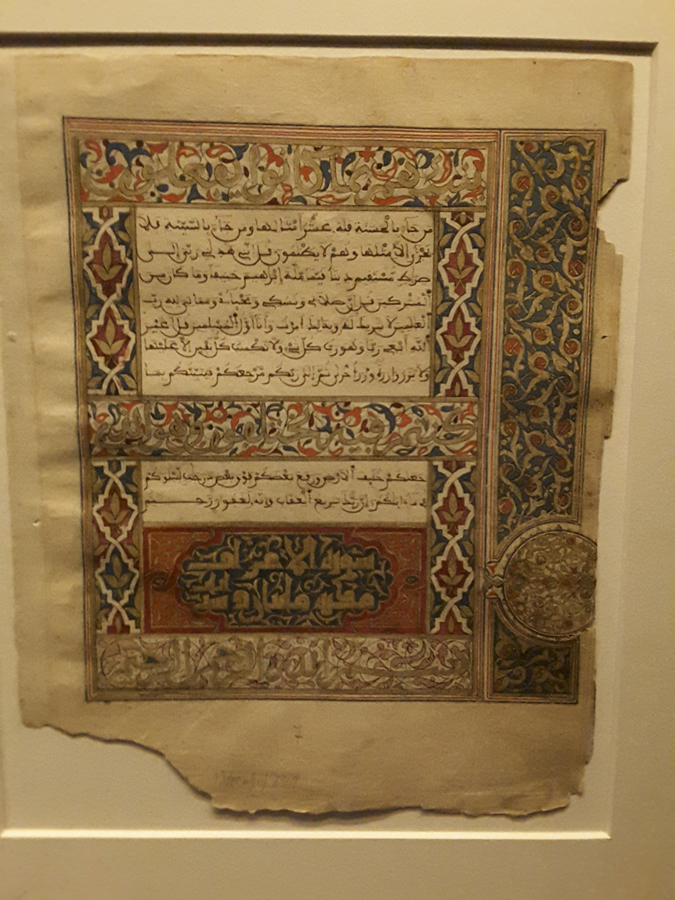 ينبئهم بما كانوا يفعلون
من جاء بالحسنة فله عشر أمثالها ومن جاء بالسيئة فلا
يجزى إلا مثلها وهم لا يظلمون قل إنني هدىني ربي إلى
صرط مستقيم دينا قيما ملة إبرهيم حنيفا وما كان من
المشركين قل إن صلاتي ونسكي ومحياي ومماتي لله رب
العلمين لا شريك له وبذلك أمرت وأنا أول المسلمين قل أغير
الله أبغي ربا وهو رب كل شيء ولا تكسب كل نفس إلا عليها
ولا تزر وازرة وزر أخرى ثم إلى ربكم مرجعكم فينبئكم بما
كنتم فيه تختلفون وهو الذي
جعلكم خلئف الأرض ورفع بعضكم فوق بعض درجت ليبلوكم
في ما ءاتيكم إن ربك سريع العقاب وإنه لغفور رحيم
سورة الأعراف
مكية مائتان و
بسم الله الرحمن الرحيم